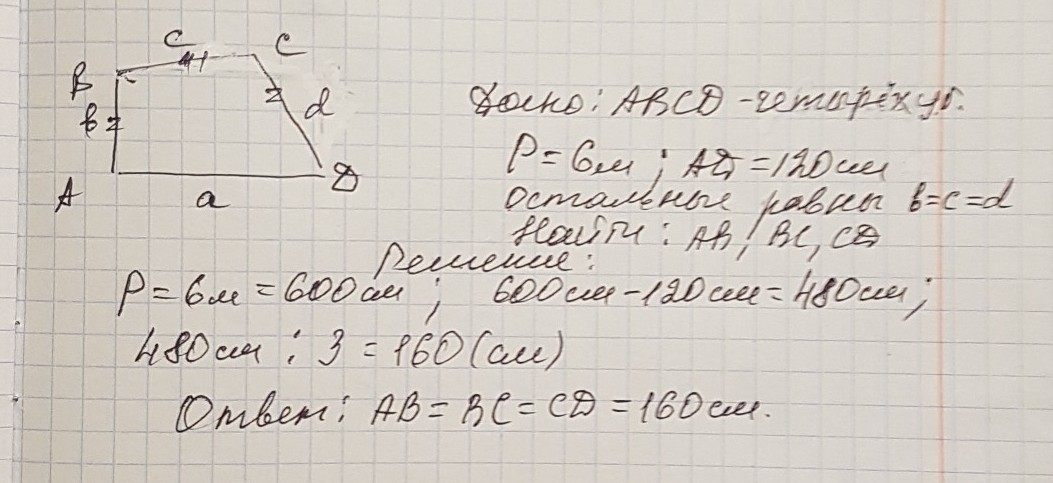 c
C
B
b
d
A
a
D
Дано: ABCD - четырёхуг.
P = 6м ; AD = 120см
остальные равны b=c=d
Найти: AB, BC, CD
Решение:
P = 6м = 600см ; 600см - 120см = 480см ;
480см : 3 = 160 (см)
Ответ: AB = BC = CD = 160см.